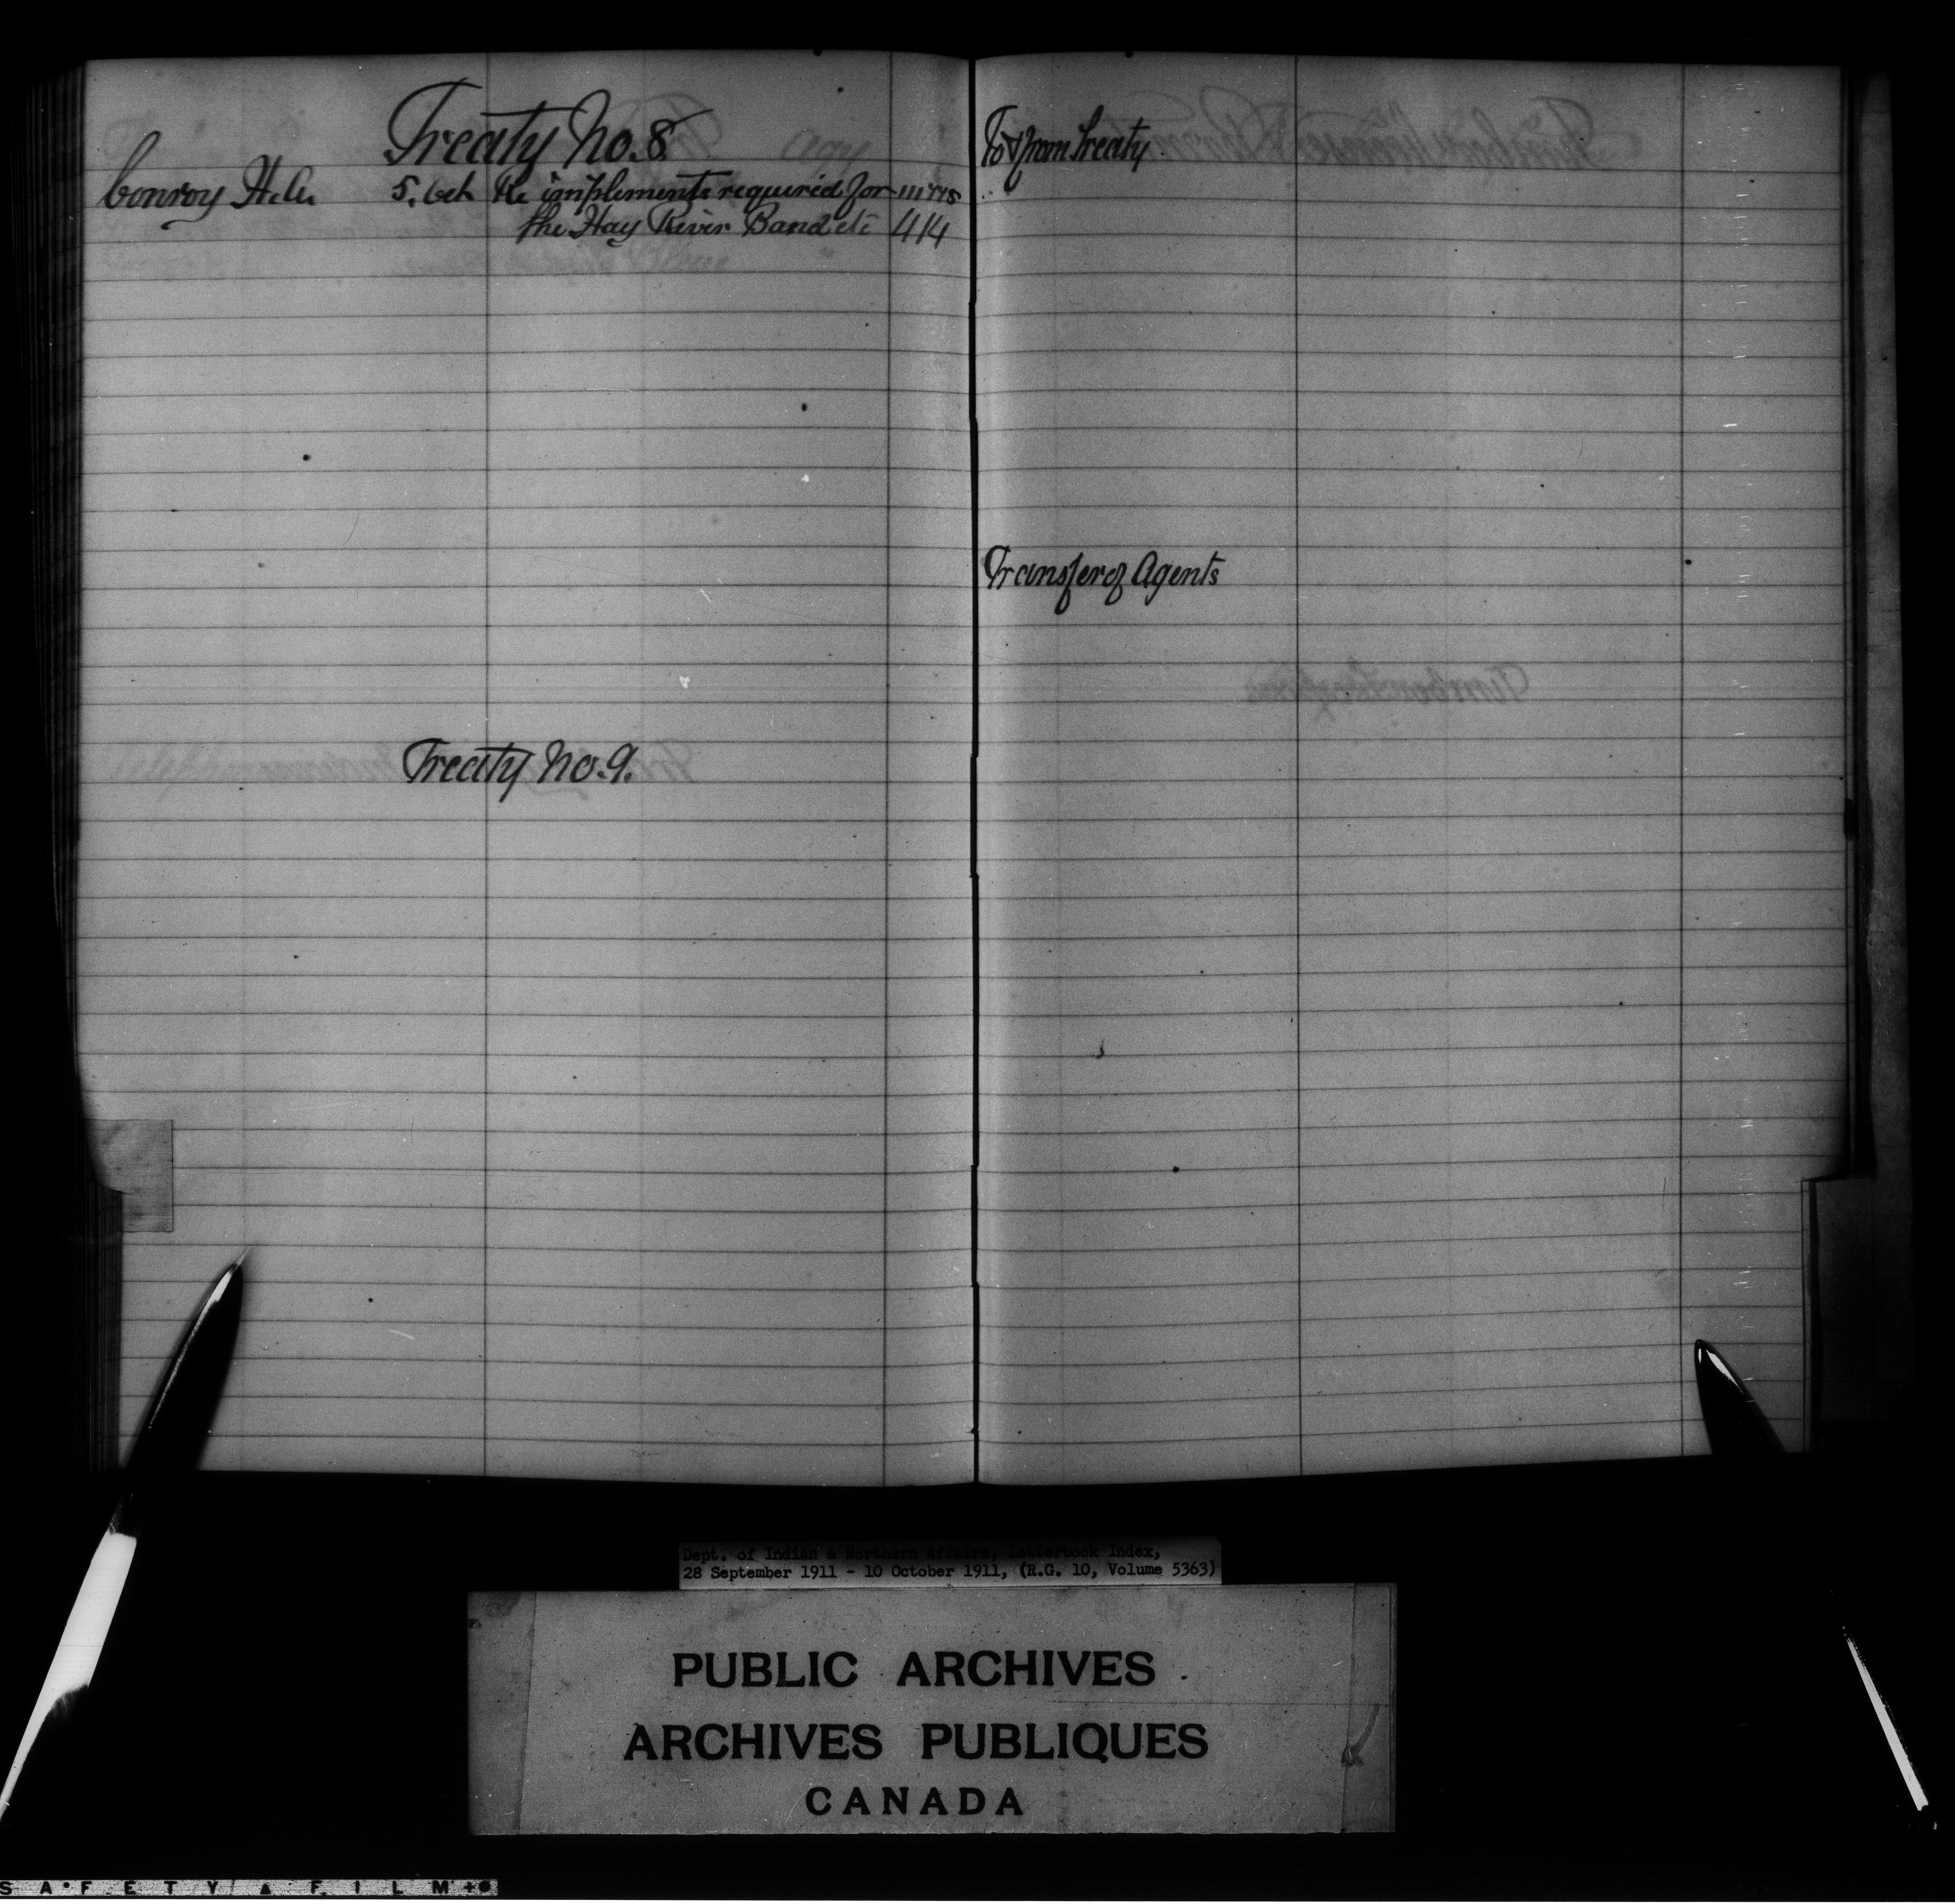 Treaty No. 8
Conroy H.A. 5. Oct Re implements required for
the Hay River Band etc 414
Treaty No. 9.
To & from Treaty.
Transfer of Agents
Dept. of Indian & Northern Affairs, Letterbook Index,
28 September 1911 - 10 October 1911, (R.G. 10, Volume 5363)
PUBLIC ARCHIVES
ARCHIVES PUBLIQUES
CANADA
SAFETY FILM